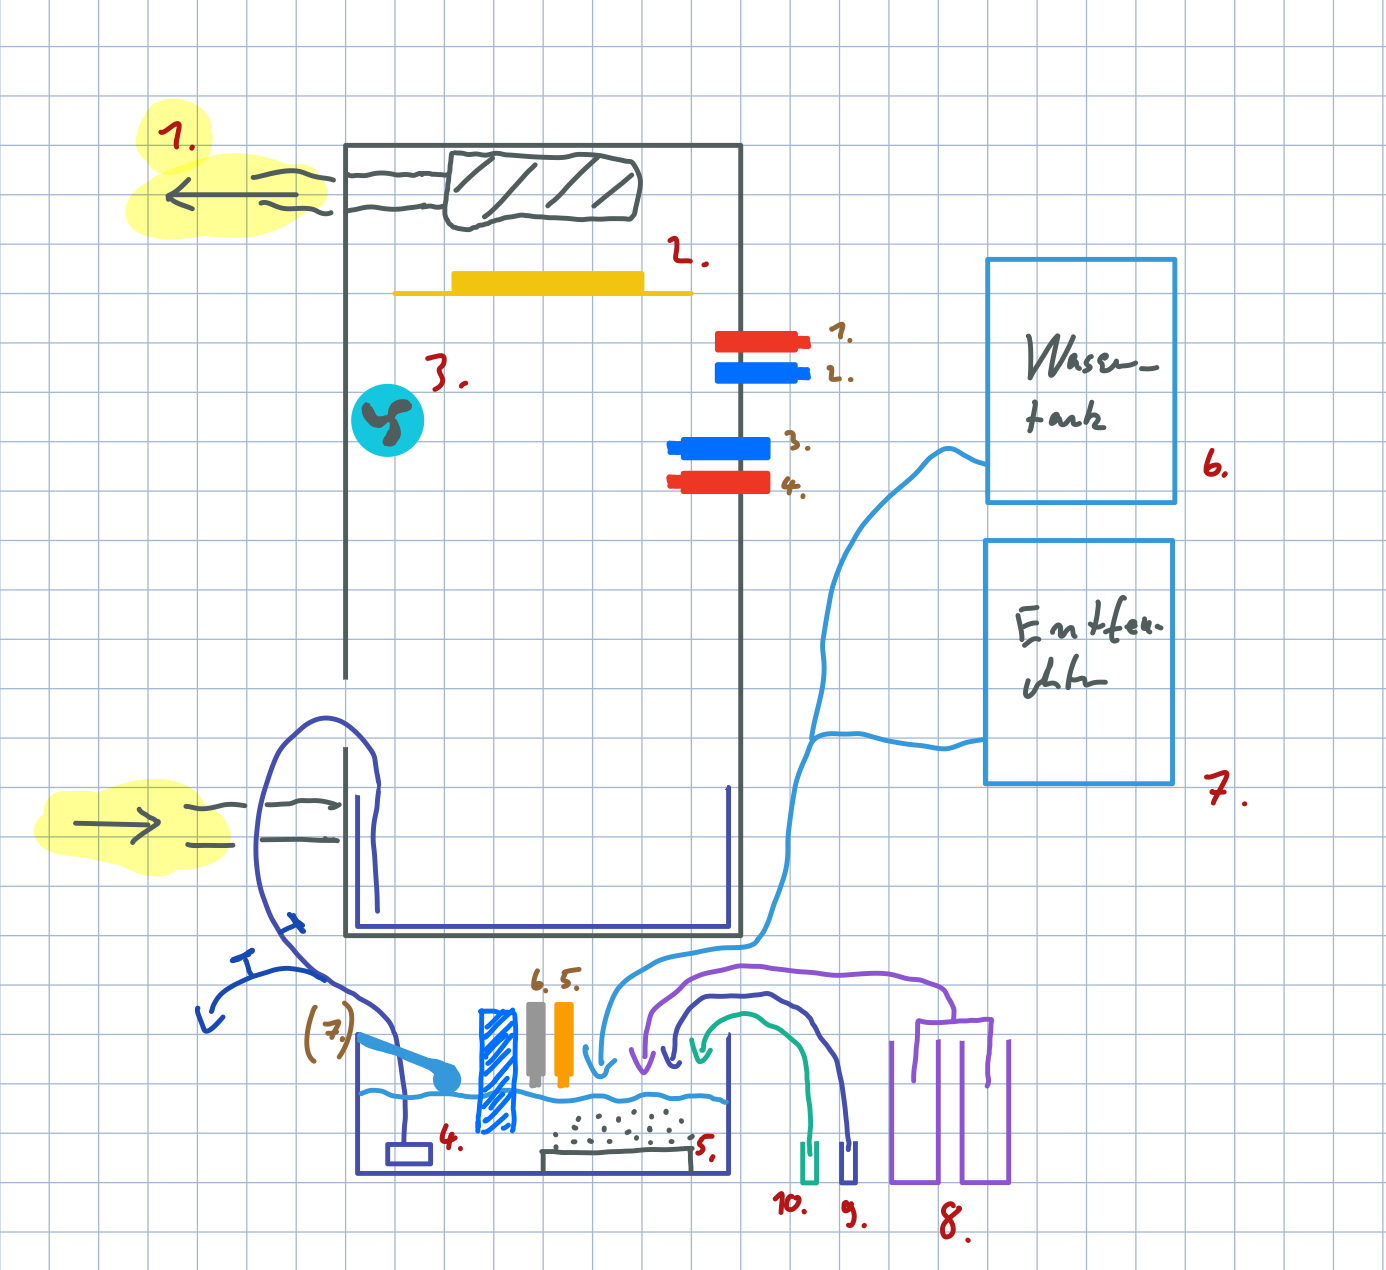 1.
2.
1.
3.
2.
Wasser-
tank
3.
4.
6.
Entfeu-
chter
7.
6. 5.
(7.)
4.
5.
10. 9. 8.